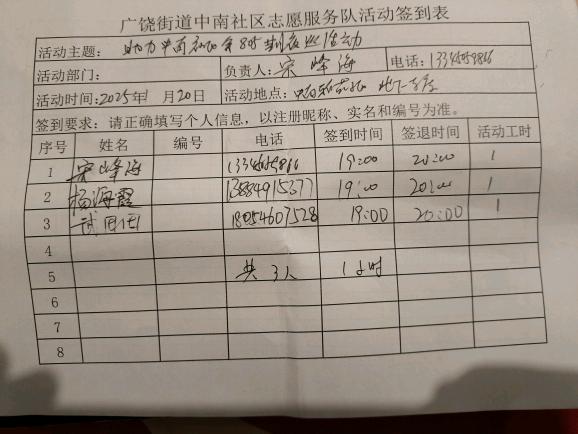 广饶街道中南社区志愿服务队活动签到表
活动主题: 助力中南 活动
活动部门: 负责人:宋峰海 电话:
活动时间:2025年1月20日 活动地点:
签到要求:请正确填写个人信息,以注册昵称、实名和编号为准。
序号 姓名 编号 电话 签到时间 签退时间 活动工时
1 宋峰海 19:00 20:00 1
2 杨海霞 13884915377 19:00 20:00 1
3 18054607528 19:00 20:00 1
4
5 共3人 1小时
6
7
8